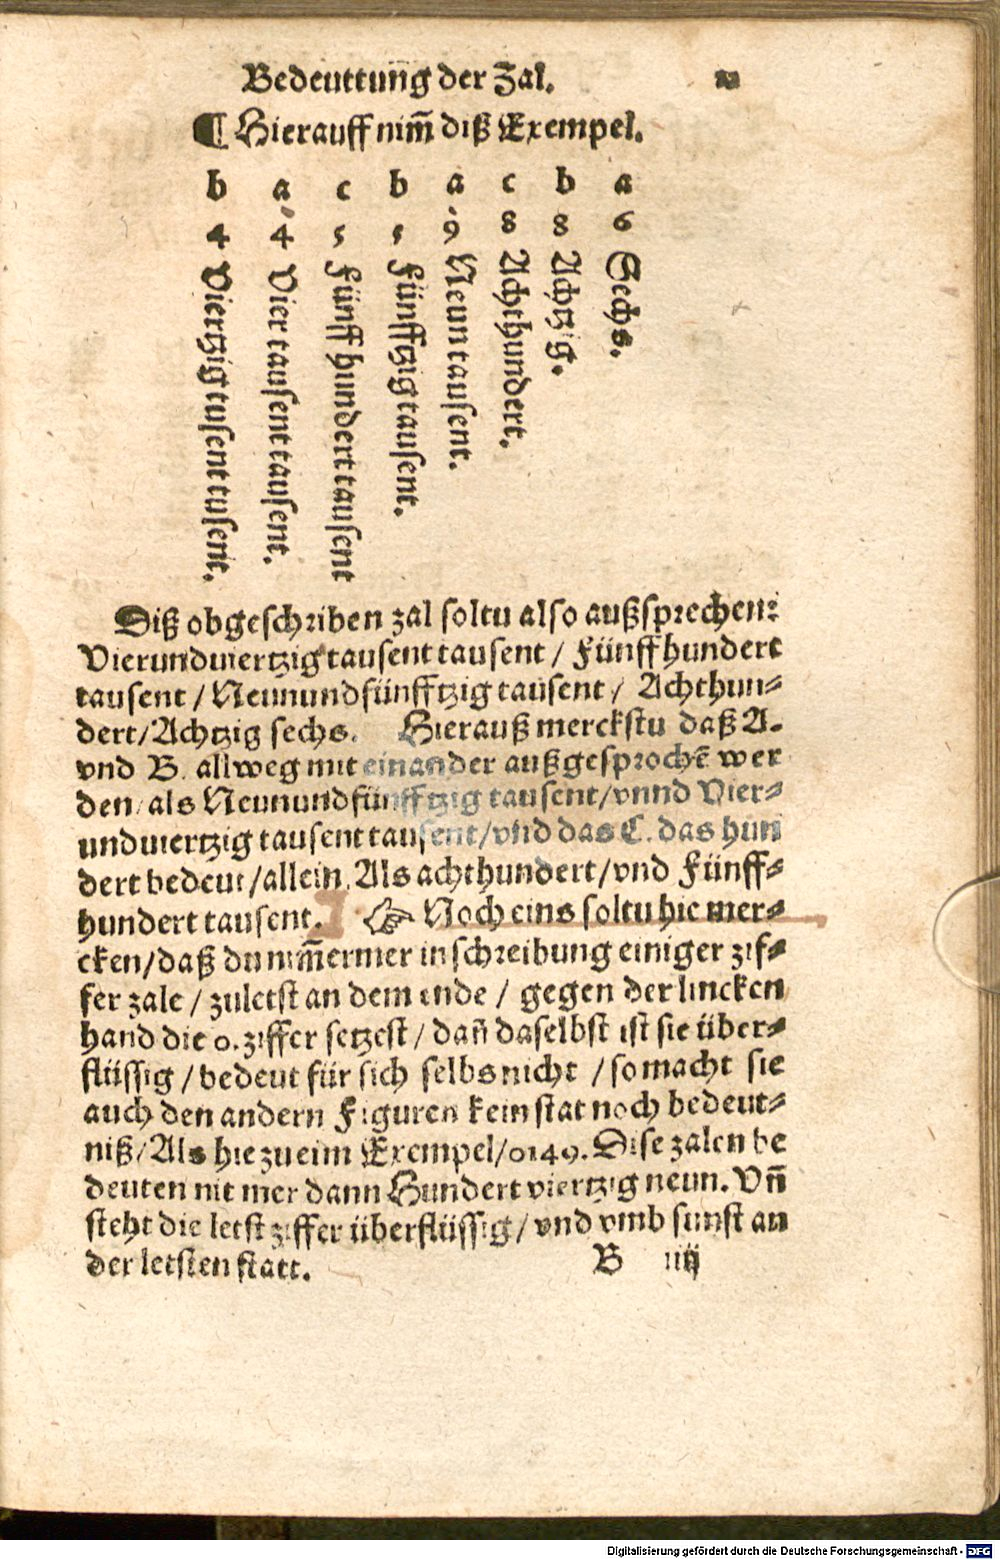 Bedeuttung der Zal.
¶ Hierauff nim̃ diß Exempel.
b a c b a c b a
4 4 5 5 9 8 8 6
Viertzig tusent tusent.
Vier tausent tausent.
Fünff hundert tausent
Fünfftzig tausent.
Neun tausent.
Achthundert.
Achtzig.
Sechs.
Diß obgeschriben zal soltu also außsprechen:
Vierundviertzig tausent tausent / Fünff hundert
tausent / Neunundfünfftzig tausent / Achthun⸗
dert / Achtzig sechs. Hierauß merckstu daß A.
vnd B. allweg mit einander außgesprochẽ wer
den / als Neunundfünfftzig tausent / vnnd Vier⸗
undviertzig tausent tausent / vnd das C. das hun
dert bedeut / allein. Als achthundert / vnd Fünff⸗
hundert tausent. ☞ Noch eins soltu hie mer⸗
cken / daß du nim̃ermer in schreibung einiger zif⸗
fer zale / zuletst an dem ende / gegen der lincken
hand die 0. ziffer setzest / dañ daselbst ist sie über⸗
flüssig / bedeut für sich selbs nicht / so macht sie
auch den andern Figuren kein stat noch bedeut⸗
niß / Als hie zu eim Exempel / 0149. Dise zalen be
deuten nit mer dann Hundert viertzig neun. Vñ
steht die letst ziffer überflüssig / vnd vmb sunst an
der letsten statt.
B iiij
Digitalisierung gefördert durch die Deutsche Forschungsgemeinschaft - DFG